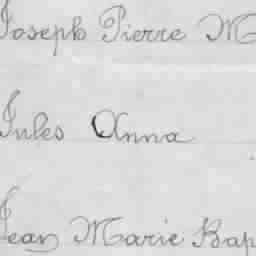 Joseph Pierre M
Jules Anna
Jean Marie Bap